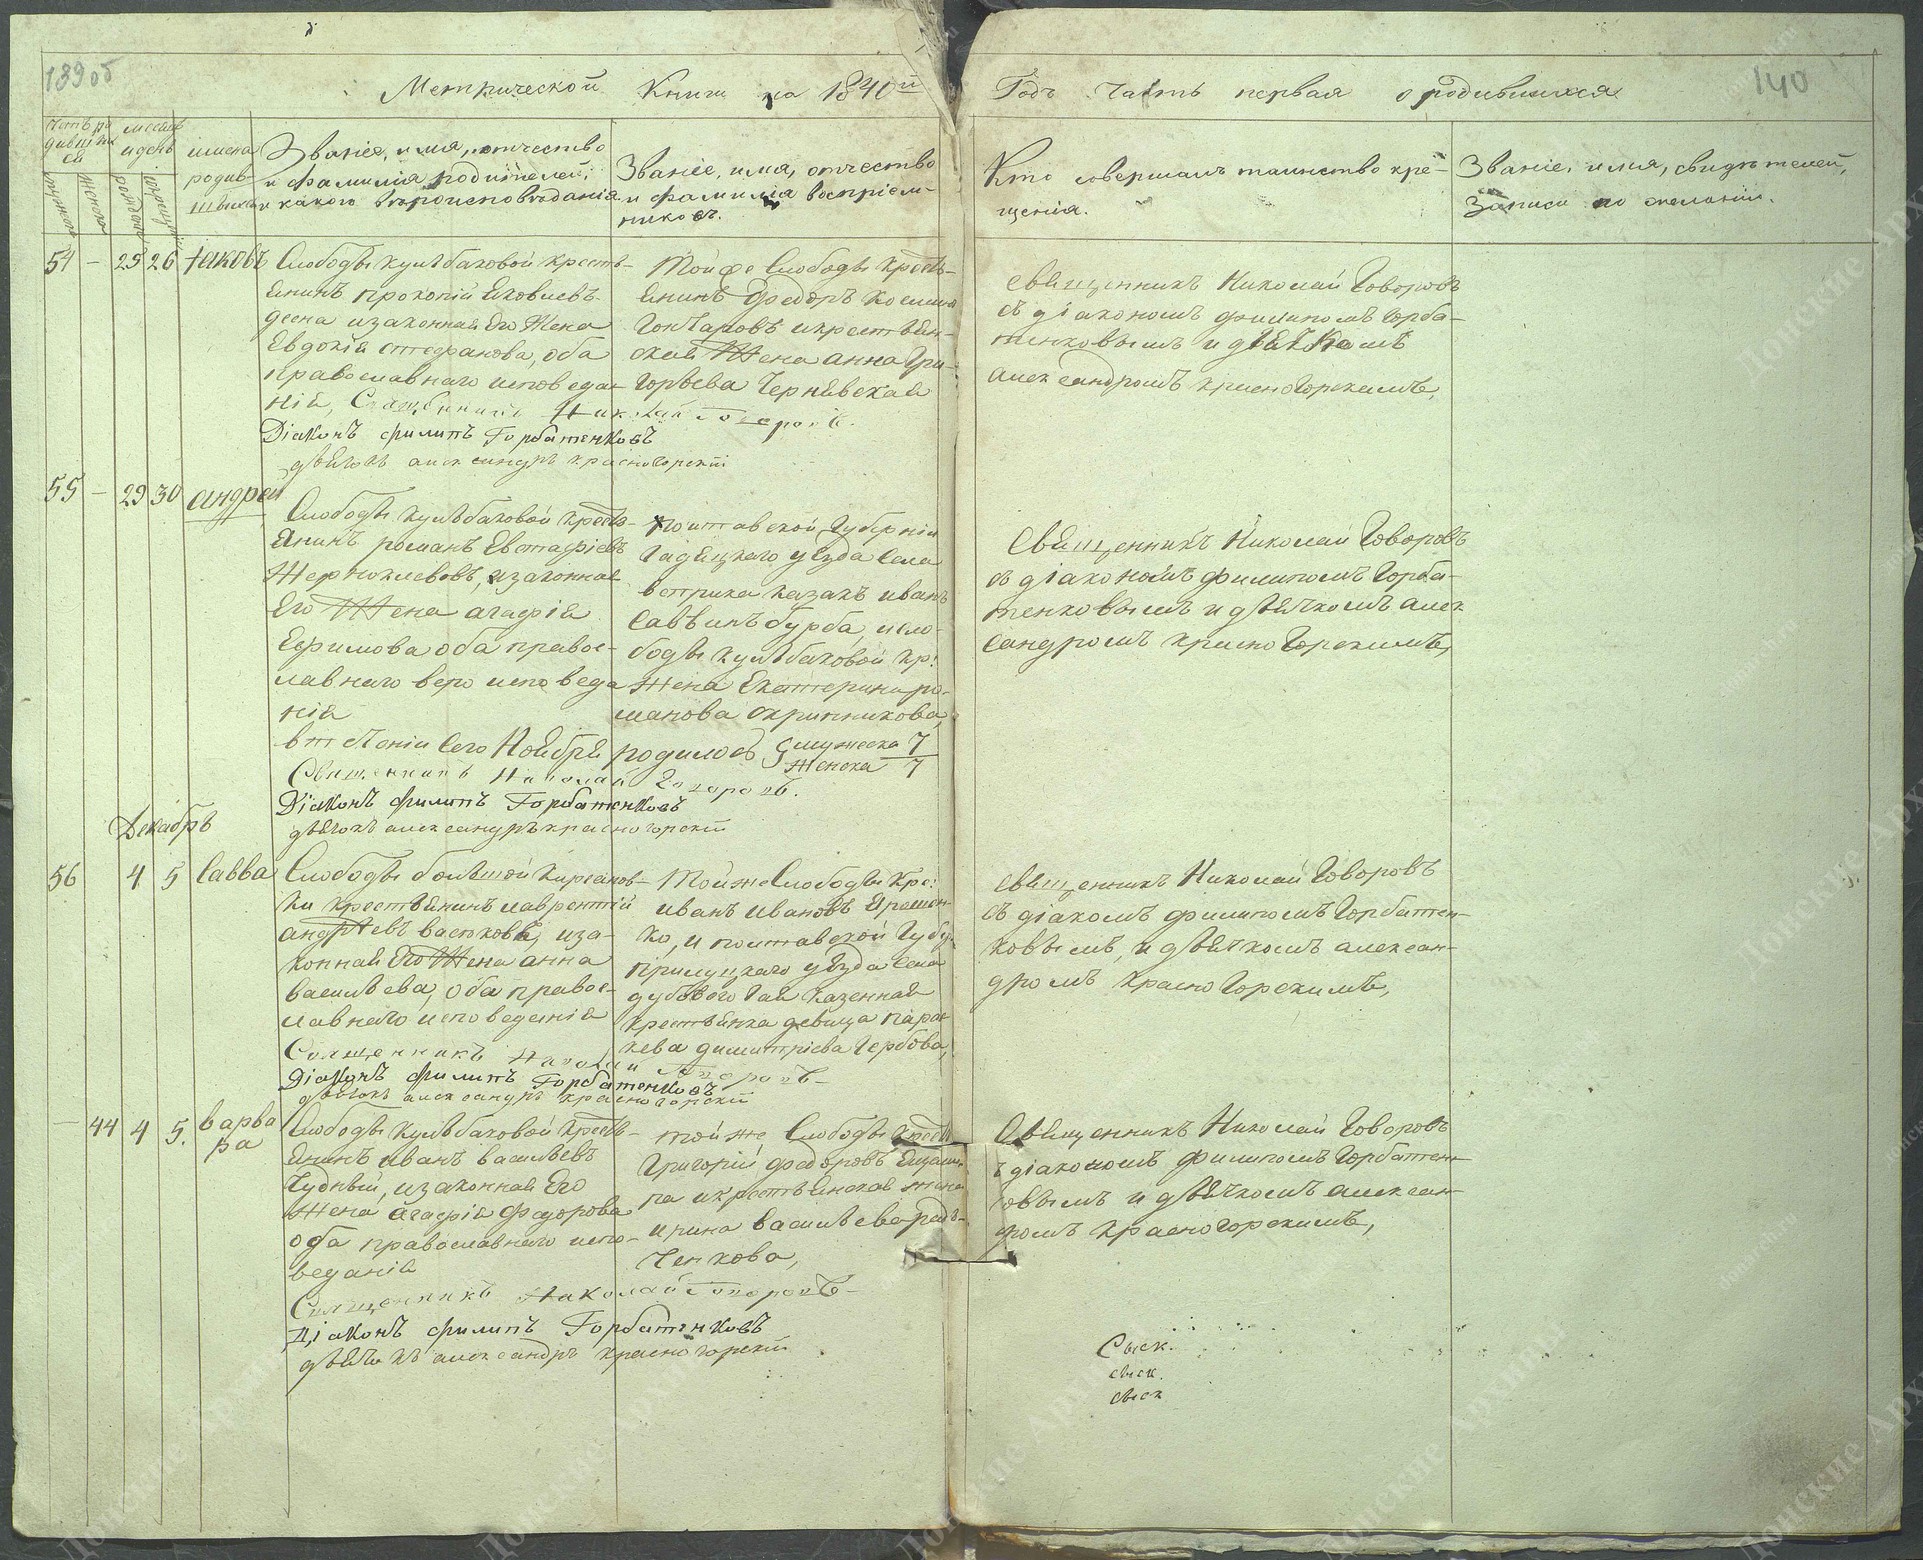 139об
Метрической Книги на 1840й Годъ Часть первая о родившихся
140
Счетъ ро
дивших
ся
мужеска
женска
месяцъ
и день
рожденія
крещенія
имена
родив-
шихся
Званіе, имя, отчество
и фамилія родителей,
и какого вероисповѣданія
Званіе, имя, отчество
и фамилія воспріем-
никовъ.
Кто совершалъ таинство кре-
щенія.
Званіе, имя, свидѣтелей,
записи по желанію.
54 – 25 26 Іаковъ
Слободы кулѣбаковой кресть-
янинъ прокопій Яковлевъ
десна изаконная Его Жена
Евдокія стефанова, оба
православнаго исповеда-
нія,
Священникъ Николай Говоровъ.
Діаконъ филипъ Горбатенковъ
дьячокъ александръ красногорскій
Той же Слободы кресть-
янинъ Федоръ Космин
Гончаровъ икрестьян-
ская Жена анна Гри-
горьева Чернявская
священникъ Николай Говоровъ
съ діакономъ филипомъ Горба-
тенковымъ и дьячкомъ
александромъ красногорскимъ,
55 – 29 30 андрей
Слободы кулѣбаковой кресть-
янинъ романъ Евстафіевъ
Жерноклевовъ, изаконная
Его Жена агафія
Ефимова оба правос-
лавнаго веро исповеда
нія
полтавской Губерніи
Гадяцкаго уѣзда села
веприка казакъ иванъ
саввинъ бурба, исло-
боды кулѣбаковой кр:
жена Екатерина ро-
манова скрипникова,
Священникъ Николай Говоровъ
съ діакономъ филипомъ Горба-
тенковымъ и дьячкомъ алек
сандромъ красногорскимъ,
втеченіи сего Ноября родилось мужеска 7
Женска 7
Священникъ Николай Говоровъ.
Діаконъ филипъ Горбатенковъ
дьячокъ александръ красногорскій
Декабрь
56 4 5 Савва
Слободы большой кирсанов-
ки крестьянинъ лаврентій
андреевъ васюковъ, иза-
конная Его Жена анна
васильева, оба правос-
лавнаго исповеданія
Священникъ Николай Говоровъ
Діаконъ филипъ Горбатенковъ
дьячокъ александръ красногорскій
Той же Слободы кре:
иванъ ивановъ Ярошен-
ко, и полтавской Губер
прилуцкаго уѣзда села
дубового Гая казенная
крестьянка девица парас
кева димитріева Гербова,
священникъ Николай Говоровъ
съ діакомъ филипомъ Горбатен-
ковымъ, и дьячкомъ алексан-
дромъ красногорскимъ,
– 44 4 5. варва
ра
Слободы кулѣбаковой кресть-
янинъ иванъ васильевъ
Чудный, изаконная Его
Жена агафія Федорова
оба православнаго испо-
веданія
Священникъ Николай Говоровъ
Діаконъ филипъ Горбатенковъ
дьячокъ александръ красногорскій
той же Слободы крест
Григорій федоровъ
ра икрестьянская жена
ирина васильева
ченкова,
Священникъ Николай Говоровъ
съ діакономъ филипомъ Горбатен-
ковымъ и дьячкомъ алексан-
дромъ красногорскимъ,
Сыск.
сыск.
сыск
Донские Архивы